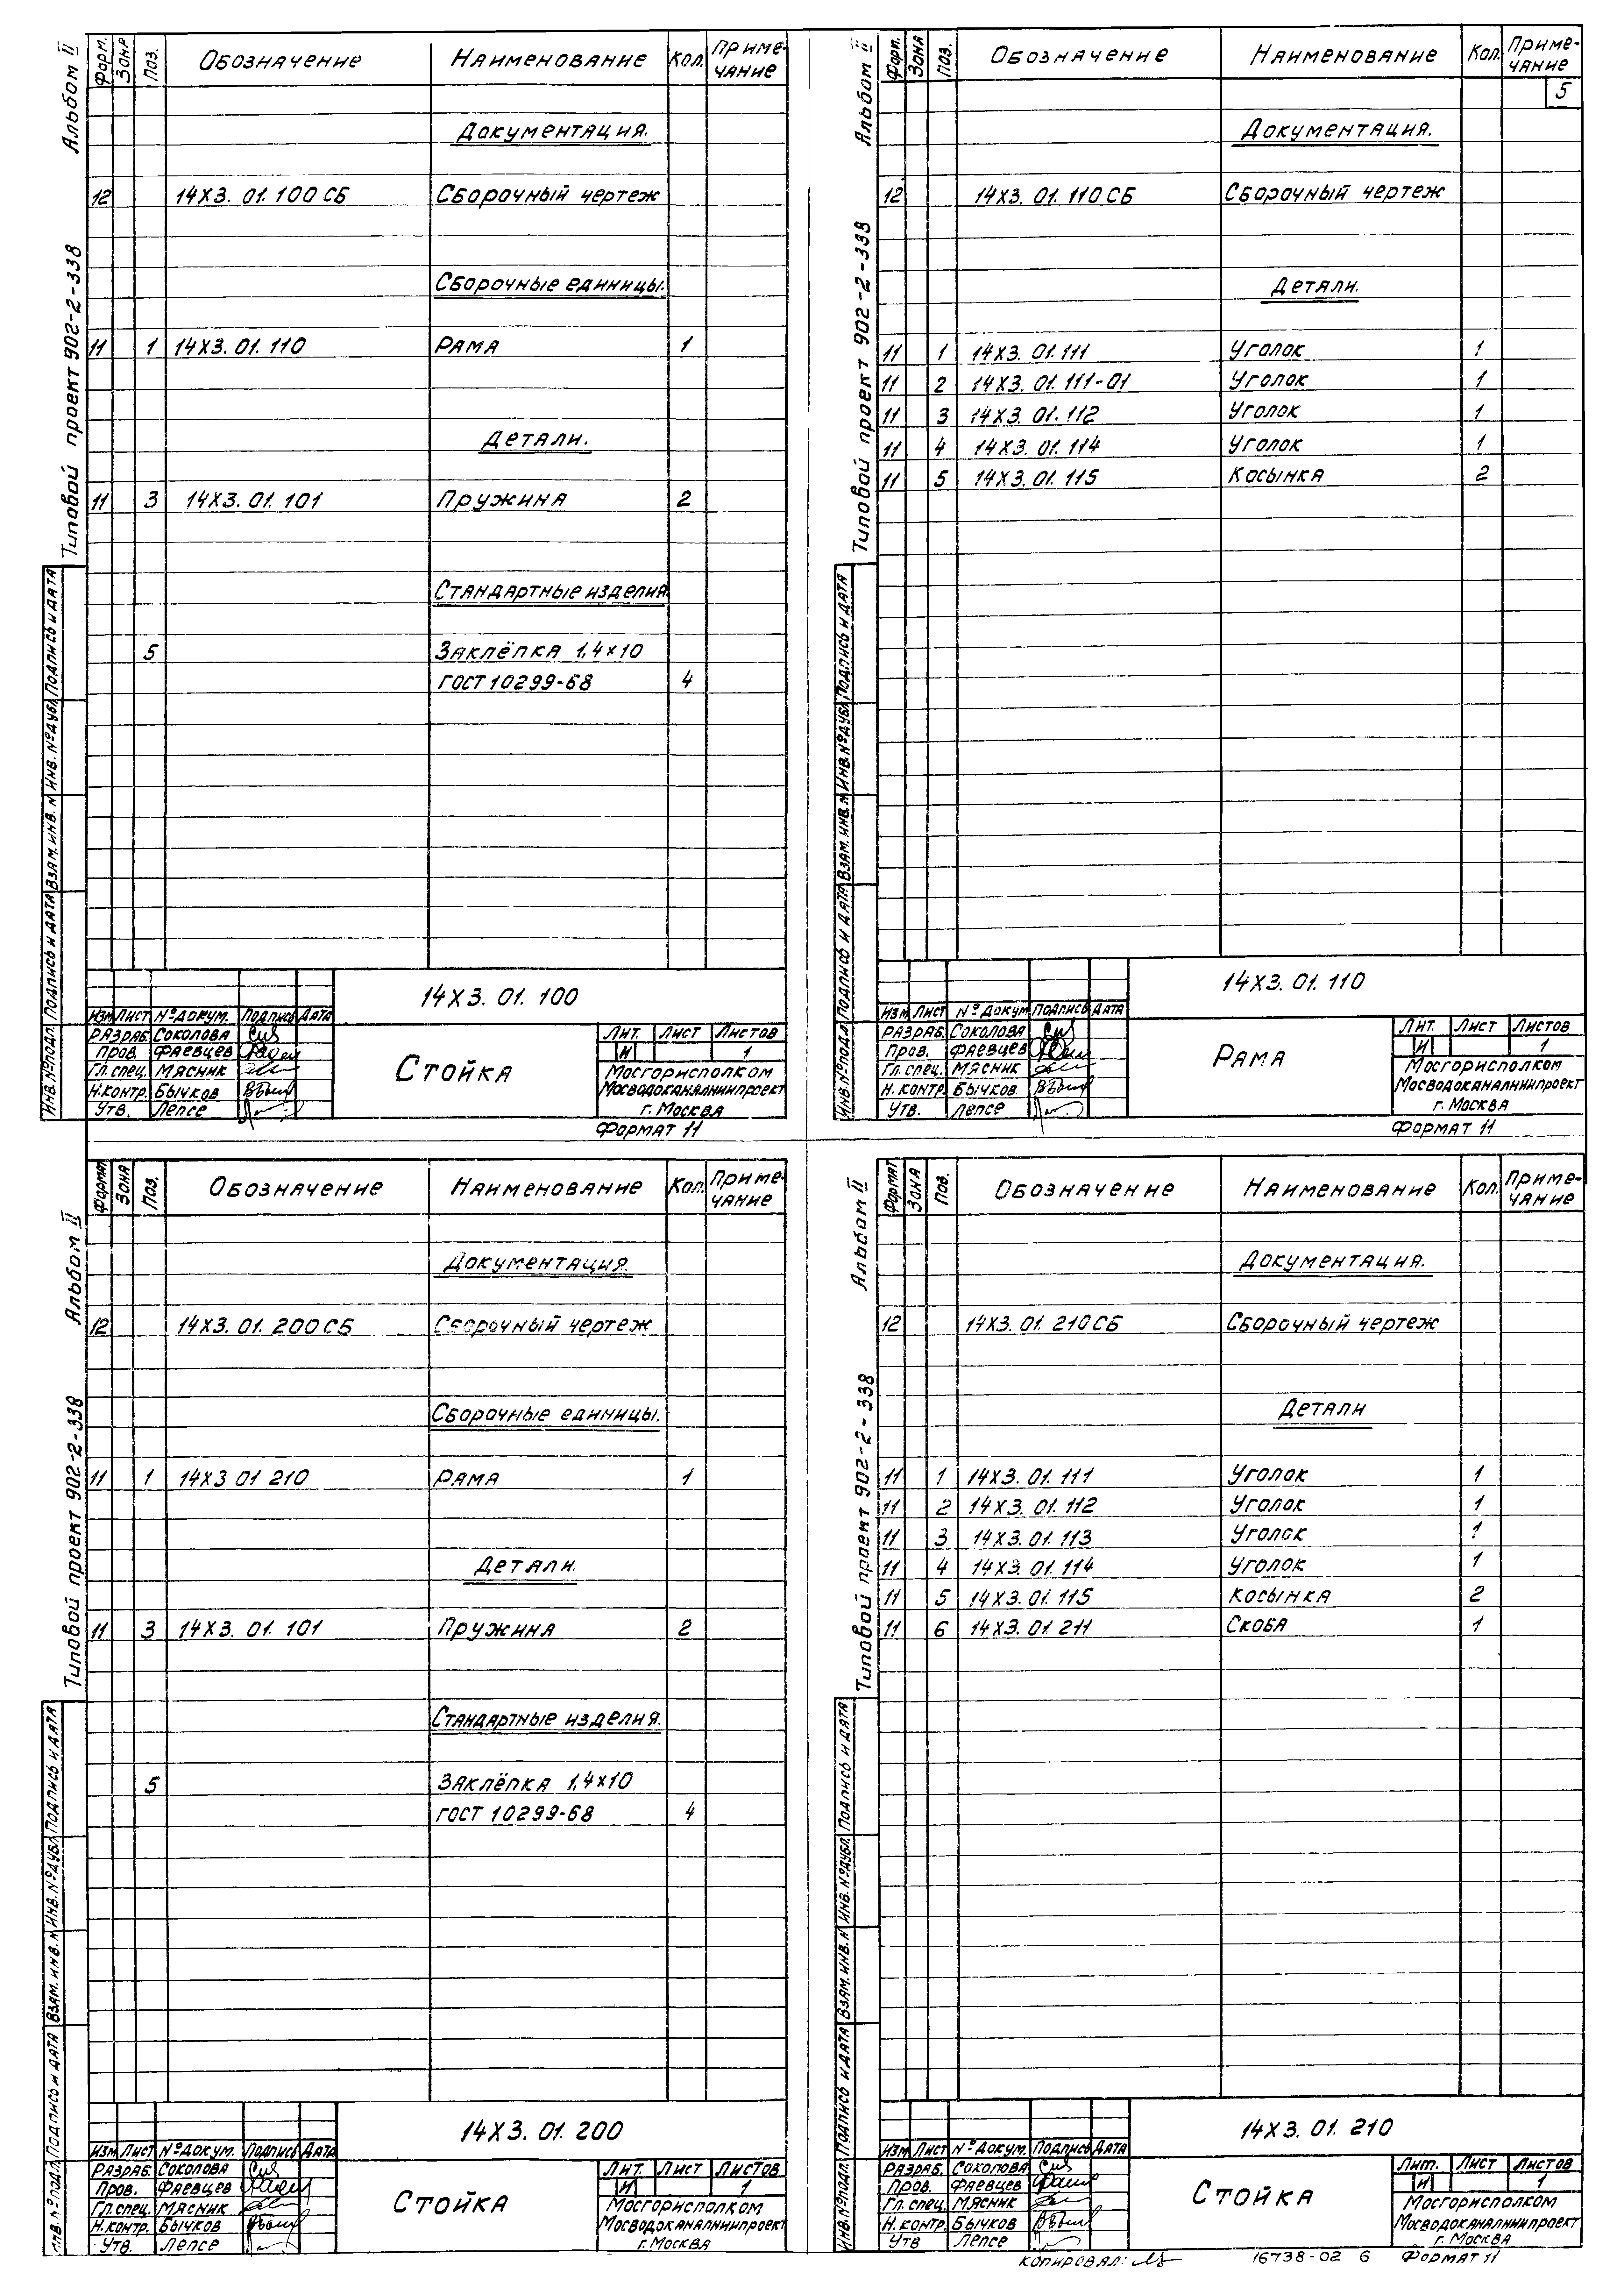 Альбом II
Типовой проект 902-2-338
Форм. Зона Поз. Обозначение Наименование Кол. Приме-чание
Документация.
12 14Х3. 01. 100 СБ Сборочный чертеж
Сборочные единицы.
11 1 14Х3. 01. 110 Рама 1
Детали.
11 3 14Х3. 01. 101 Пружина 2
Стандартные изделия
5 Заклёпка 1,4×10
ГОСТ 10299-68 4
Инв. № подл. Подпись и дата Взам. инв. № Инв. № дубл. Подпись и дата
14Х3. 01. 100
Изм Лист № докум. Подпись Дата
Разраб. Соколова
Пров. Фаевцев
Гл. спец. Мясник
Н. контр. Бычков
Утв. Лепсе
Стойка
Лит. Лист Листов
И 1
Мосгорисполком
Мосводоканалниипроект
г. Москва
Формат 11
Альбом II
Типовой проект 902-2-338
Форм. Зона Поз. Обозначение Наименование Кол. Приме-чание
5
Документация.
12 14Х3. 01. 110 СБ Сборочный чертеж
Детали.
11 1 14Х3. 01. 111 Уголок 1
11 2 14Х3. 01. 111-01 Уголок 1
11 3 14Х3. 01. 112 Уголок 1
11 4 14Х3. 01. 114 Уголок 1
11 5 14Х3. 01. 115 Косынка 2
Инв. № подл. Подпись и дата Взам. инв. № Инв. № дубл. Подпись и дата
14Х3. 01. 110
Изм Лист № докум Подпись Дата
Разраб. Соколова
Пров. Фаевцев
Гл. спец. Мясник
Н. контр. Бычков
Утв. Лепсе
Рама
Лит. Лист Листов
И 1
Мосгорисполком
Мосводоканалниипроект
г. Москва
Формат 11
Альбом II
Типовой проект 902-2-338
Формат Зона Поз. Обозначение Наименование Кол. Приме-чание
Документация.
12 14Х3. 01. 200 СБ Сборочный чертеж
Сборочные единицы.
11 1 14Х3 01 210 Рама 1
Детали.
11 3 14Х3. 01. 101 Пружина 2
Стандартные изделия.
5 Заклёпка 1,4×10
ГОСТ 10299-68 4
Инв. № подл. Подпись и дата Взам. инв. № Инв. № дубл. Подпись и дата
14Х3. 01. 200
Изм Лист № докум. Подпись Дата
Разраб. Соколова
Пров. Фаевцев
Гл. спец. Мясник
Н. контр. Бычков
Утв Лепсе
Стойка
Лит. Лист Листов
И 1
Мосгорисполком
Мосводоканалниипроект
г. Москва
Альбом II
Типовой проект 902-2-338
Формат Зона Поз. Обозначение Наименование Кол. Приме-чание
Документация.
12 14Х3. 01. 210 СБ Сборочный чертеж
Детали
11 1 14Х3. 01. 111 Уголок 1
11 2 14Х3. 01. 112 Уголок 1
11 3 14Х3. 01. 113 Уголок 1
11 4 14Х3. 01. 114 Уголок 1
11 5 14Х3. 01. 115 Косынка 2
11 6 14Х3. 01 211 Скоба 1
Инв. № подл. Подпись и дата Взам. инв. № Инв. № дубл. Подпись и дата
14Х3. 01. 210
Изм Лист № докум. Подпись Дата
Разраб. Соколова
Пров. Фаевцев
Гл. спец. Мясник
Н. контр. Бычков
Утв Лепсе
Стойка
Лит. Лист Листов
И 1
Мосгорисполком
Мосводоканалниипроект
г. Москва
Копировал: 16738-02 6 Формат 11